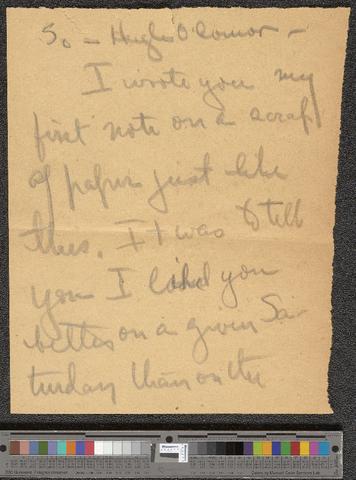 So - Hugh O'Connor -
I wrote you my
first note on a scrap
of paper just like
this. It was to tell
you I liked you
better on a given Sa-
turday than on the